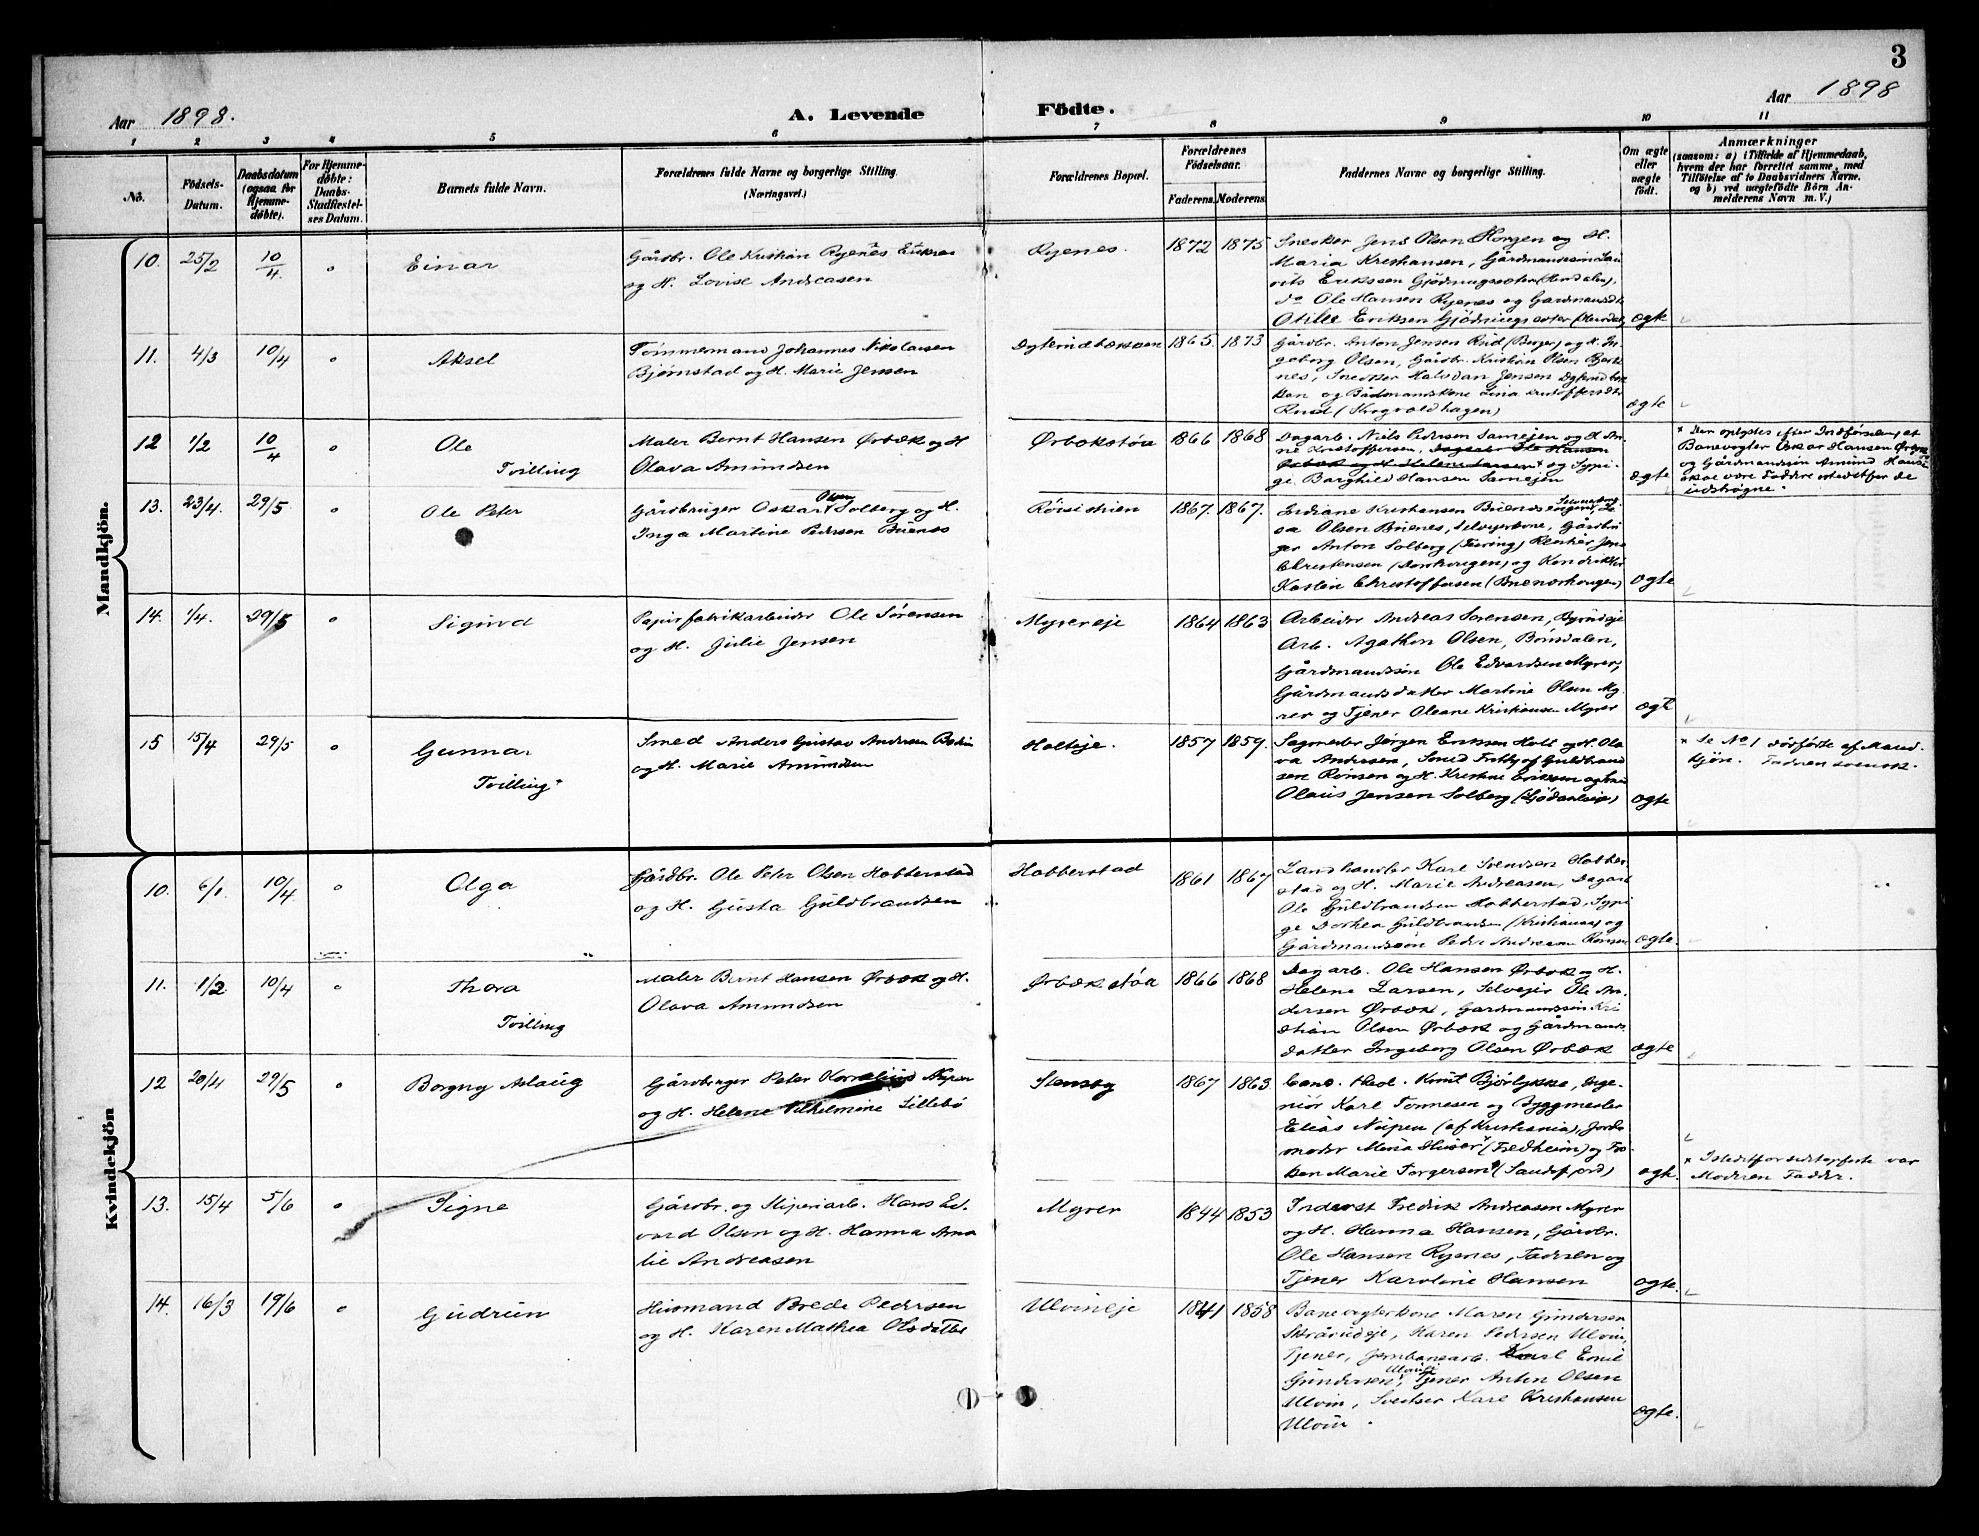 3
Aar 1898.
A. Levende
Födte.
Aar 1898
1 2 3 4 5 6 7 8 9 10 11
No.
Födsels-
Datum.
Daabsdatum
(ogsaa for
Hjemme-
döbte).
For Hjemme-
döbte:
Daabs-
Stadfæstel-
ses Datum.
Barnets fulde Navn.
Forældrenes fulde Navne og borgerlige Stilling.
(Næringsvei.)
Forældrenes Bopæl.
Forældrenes
Födselsaar.
Faderens. Moderens.
Faddernes Navne og borgerlige Stilling.
Om ægte
eller
uægte
födt.
Anmærkninger
(saasom: a) i Tilfælde af Hjemmedaab,
hvem der har forrettet samme, med
Tilföielse af to Daabsvidners Navne.
og b) ved uægtefödte Börn An-
melderens Navn m. V.)
Mandkjön.
10. 25/2 10/4 0 Einar
Gårdbr. Ole Kristian Ryenes Eriksen
og H. Lovise Andreasen
Ryenes. 1872 1875
Snedker Jens Olsen Horgen og H.
Maria Kristiansen, Gårdmandssön Lau-
rits Eriksen Gjödningsæter (Hurdalen),
do Ole Hansen Ryenes og Gårdmandsdt.
Otilie Eriksen Gjödningsæter (Hurdal)
ægte
11. 4/3 10/4 0 Aksel
Tömmermand Johannes Nikolaisen
Bjørnstad og H. Marie Jensen
1865. 1873
Gårdbr. Anton Jensen Rud (Berger) og H. In-
geborg Olsen, Gårdbr. Kristian Olsen
nes, Snedker Halvdan Jensen
ken og Bådmandskone Lina Kristoffersdtr
Rud (Kongvoldhagen)
ægte
12 1/2 10/4 0 Ole
Tvilling
Maler Bernt Hansen Ørbæk og H
Olava Amundsen
Ørbækstöa 1866 1868
Dagarb. Niels Pedersen Samejen og H. An-
ne Kristoffersen, Dagarb. Ole Hansen
Ørbæk og H. Helene Larsen* og Sypi-
ge Borghild Hansen Samejen
ægte
* Der oplystes efter Indförselen, at
Banevogter Oskar Hansen Ørbæk
og Gårdmandssön Amund Hansen
skal være Faddere istedetfor de
udströgne.
13. 23/4. 29/5 0 Ole Peter
Gårdbruger Oskar Olsen Solberg og H.
Inga Martine Pedersen Büenes
1867. 1867.
Kristiansen
Olsen Büenes, Selveierkone, Gårdbru-
ger Anton Solberg (Feiring)
Christensen og Konduktör
Christoffersen
ægte
14. 1/4. 29/5 0 Sigurd
Papirfabrikarbeider Ole Sörensen
og H. Julie Jensen
Myrereje 1864 1863
Arbeider Andreas Sörensen,
Arb. Agathon Olsen,
Gårdmandssön Ole Edvardsen Myrer,
Gårdmandsdatter Martine Olsen My-
rer og Tjener Oleane Kristiansen Myrer
ægte
15 15/4 29/5 0 Gunnar
Tvilling*
Smed Anders Gustav Andersen
og H. Marie Amundsen
Holteje. 1857 1859.
Sagmester Jörgen Eriksen Holt og H. Ola-
va Andersen, Smed Fritjof Guldbrand-
sen Rönsen og H. Kristine Eriksen og
Olaus Jensen Solberg
ægte
* Se No 1 dödfödte af Mand-
kjön. Faderen svensk.
Kvindekjön
10. 6/1. 10/4 0 Olga
Gårdbr. Ole Peter Olsen Hobberstad
og H. Gusta Guldbrandsen
Hobberstad 1861 1867
Landhandler Karl Svendsen Hobber-
stad og H. Marie Andreasen, Dagarb.
Ole Guldbrandsen Hobberstad, Sypi-
ge Dorthea Guldbrandsen (Kristiania) og
Gårdmandssön Peder Andreasen Rönsen
ægte.
11. 1/2 10/4 0 Thora
Tvilling
Maler Bernt Hansen Ørbæk og H.
Olava Amundsen
Ørbækstöa 1866 1868
Dagarb. Ole Hansen Ørbæk og H.
Helene Larsen, Selvejer Ole An-
dersen Ørbæk, Gårdmandssön Kri-
stian Olsen Ørbæk og Gårdmands-
datter Ingeborg Olsen Ørbæk
ægte
12 20/4 29/5 0 Borgny Aslaug
Gårdbruger Peter Kornelius Nupen
og H. Helene Vilhelmine Lillebö
Stensby 1867 1863
Cand. theol. Knut Bjørlykke, Inge-
niör Karl Tönnesen og Byggmester
Elias Nupen (af Kristiania), Jorde-
moder Mina Huser* (Fredheim) og Frö-
ken Marie Torgersen (Sandefjord)
ægte.
* Istedetfor
Moderen Fadder.
13. 15/4 5/6 0 Signe
Gårdbr. og Sliperiarb. Hans Ed-
vard Olsen og H. Hanna Ama-
lie Andreasen
Myrer 1844 1853
Inderst Fredrik Andreasen Myrer
og H. Hanna Hansen, Gårdbr.
Ole Hansen Ryenes, Faderen og
Tjener Karoline Hansen
ægte.
14. 16/3 19/6 0 Gudrun
Husmand Brede Pedersen
og H. Karen Mathea Olsdatter
Ulvineje 1841 1858
Banevogterkone Maren Gundersen
Skrårudeje, Karen Pedersen Ulvin,
Tjener, Jernbanearb. Karl Emil
Gundersen, Ulvin, Tjener Anton Olsen
Ulvin, Sveitser Karl Kristiansen
Ulvin.
ægte.